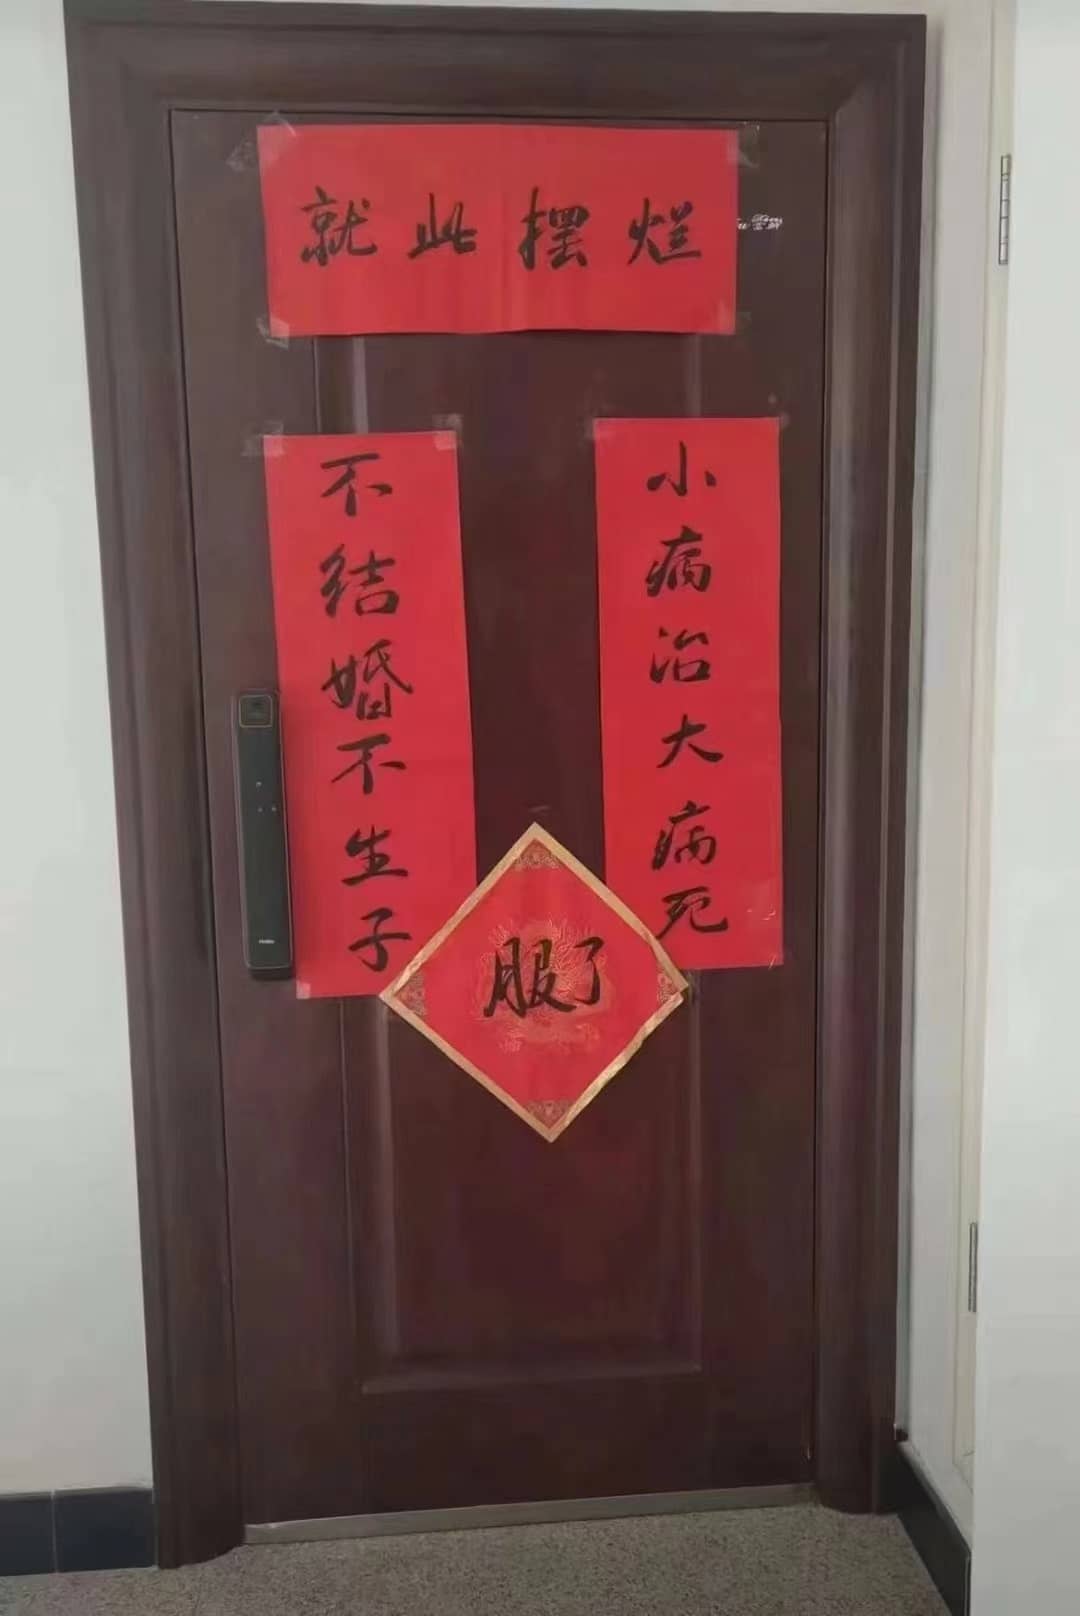 就此摆烂
小病治大病死
不结婚不生子
服了